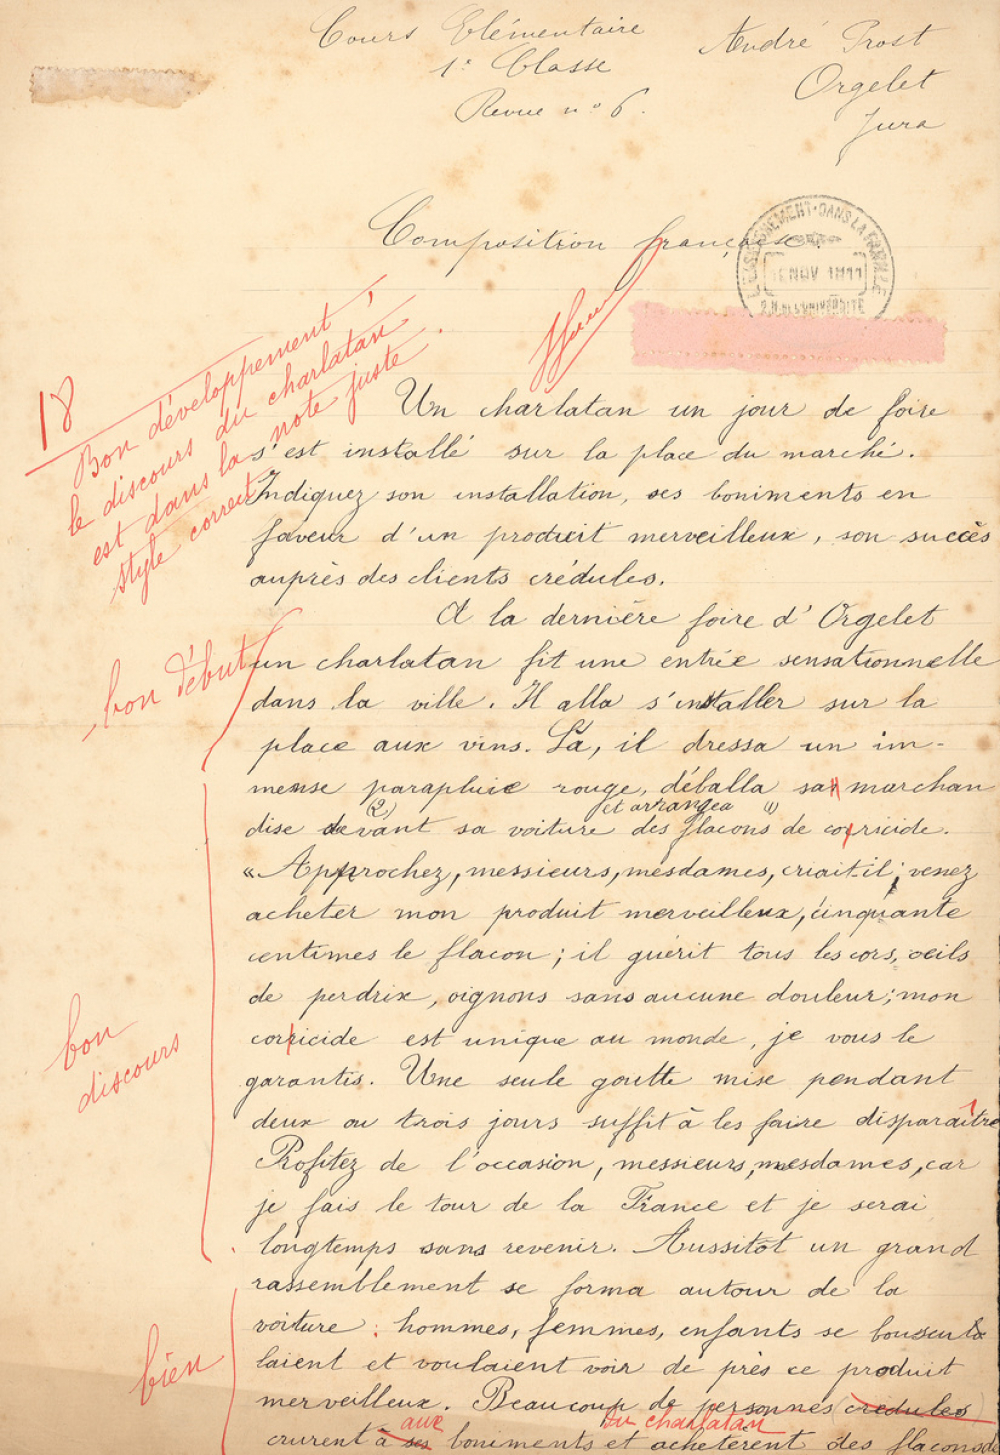 Cours Elémentaire
1e Classe
Revue no 6.
André Prost
Orgelet
Jura
Composition française.
L'ENSEIGNEMENT DANS LA FAMILLE
NOV 1911
18
Bon développement
le discours du charlatan
est dans la note juste.
style correct
Un charlatan un jour de foire
s'est installé sur la place du marché.
Indiquez son installation, ses boniments en
faveur d'un produit merveilleux, son succès
auprès des clients crédules.
A la dernière foire d'Orgelet
bon début
un charlatan fit une entrée sensationnelle
dans la ville. Il alla s'installer sur la
place aux vins. Là, il dressa un im-
mense parapluie rouge, déballa sa marchan
(2) et arrangea (1)
dise devant sa voiture des flacons de corricide.
« Approchez, messieurs, mesdames, criait-il; venez
acheter mon produit merveilleux, cinquante
centimes le flacon; il guérit tous les cors, oeils
de perdrix, oignons sans aucune douleur; mon
bon
discours
corricide est unique au monde, je vous le
garantis. Une seule goutte mise pendant
deux ou trois jours suffit à les faire disparaître
Profitez de l'occasion, messieurs, mesdames, car
je fais le tour de la France et je serai
longtemps sans revenir. Aussitôt un grand
rassemblement se forma autour de la
voiture : hommes, femmes, enfants se bouscu
laient et voulaient voir de près ce produit
bien
merveilleux. Beaucoup de personnes crédules
aux du charlatan
crurent à ses boniments et achetèrent des flacons